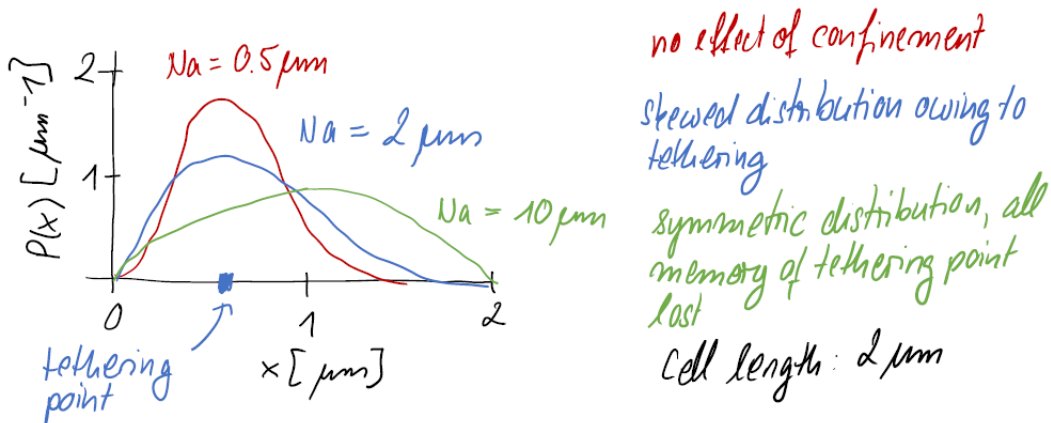 Na = 0.5 μm
Na = 2 μm
Na = 10 μm
P(x) [μm⁻¹]
2
1
0
1
2
x [μm]
tethering
point
no effect of confinement
skewed distribution owing to
tethering
symmetric distribution, all
memory of tethering point
lost
cell length: 2 μm